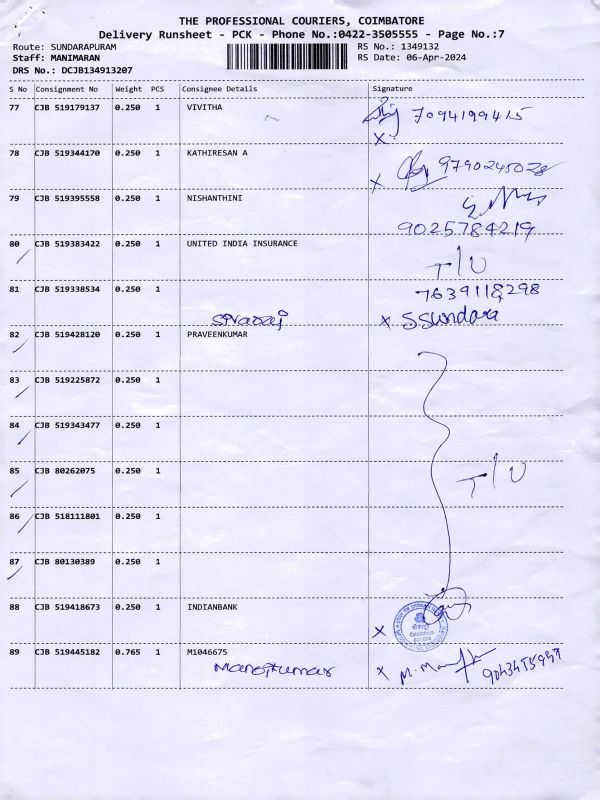 THE PROFESSIONAL COURIERS, COIMBATORE
Delivery Runsheet - PCK - Phone No.:0422-3505555 - Page No.:7
Route: SUNDARAPURAM RS No.: 1349132
Staff: MANIMARAN RS Date: 06-Apr-2024
DRS No.: DCJB134913207
S No Consignment No Weight PCS Consignee Details Signature
77 CJB 519179137 0.250 1 VIVITHA 7094199415
X
78 CJB 519344170 0.250 1 KATHIRESAN A 9790245028
X
79 CJB 519395558 0.250 1 NISHANTHINI
9025784219
80 CJB 519383422 0.250 1 UNITED INDIA INSURANCE
T/U
81 CJB 519338534 0.250 1 7639118298
Sivaraj X S Sundara
82 CJB 519428120 0.250 1 PRAVEENKUMAR
83 CJB 519225872 0.250 1
84 CJB 519343477 0.250 1
85 CJB 80262075 0.250 1 T/U
86 CJB 518111801 0.250 1
87 CJB 80130389 0.250 1
88 CJB 519418673 0.250 1 INDIANBANK
X
89 CJB 519445182 0.765 1 M1046675
Manojkumar X